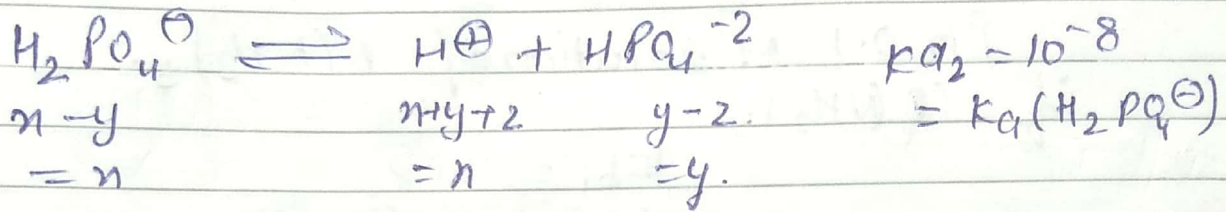 H₂PO₄⊖ ⇌ H⊕ + HPO₄⁻² Ka₂ = 10⁻⁸
x-y x+y+z y-z. = Ka(H₂PO₄⊖)
= x = x = y.